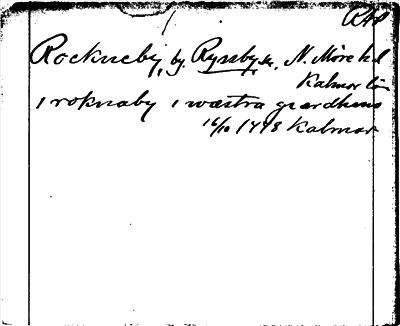 RAP
Rockneby, by, Ryssby sn, N. Möre hd
Kalmar län
i roknaby i wæstra gærdheno
16/10 1498 Kalmar